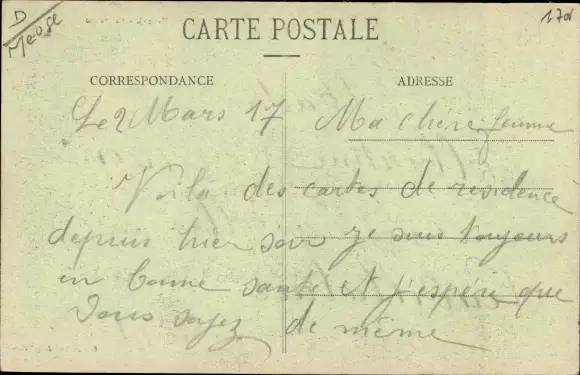 D
Meuse
170f
CARTE POSTALE
CORRESPONDANCE
ADRESSE
Le 2 Mars 17 Ma chère femme
Voilà des cartes de residence
depuis hier soir je suis toujours
en bonne santé et j'espère que
vous soyez de même